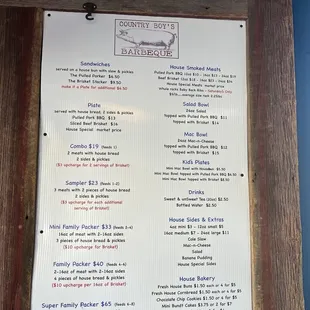 COUNTRY BOY'S
BARBEQUE
Sandwiches
served on a house bun with slaw & pickles
The Pulled Porker $6.50
The Brisket Stacker $9.50
make it a Plate for additional $4.50
Plate
served with house bread, 2 sides & pickles
Pulled Pork BBQ $13
Sliced Beef Brisket $16
House Special market price
Combo $19 (feeds 1)
2 meats with house bread
2 sides & pickles
($3 upcharge for 2 servings of Brisket)
Sampler $23 (feeds 1-2)
3 meats, 3 sides & pickles
($3 upcharge for each additional
serving of Brisket)
Mini Family Packer $33 (feeds 3-4)
14oz of meat with 2-14oz sides
3 pieces of house bread & pickles
($10 upcharge for Brisket)
Family Packer $40 (feeds 4-6)
2-14oz of meat with 2-14oz sides
4 pieces of house bread & pickles
($10 upcharge per 14oz of Brisket)
Super Family Packer $65 (feeds 6-8)
House Smoked Meats
House Special market price
Salad Bowl
24oz Salad
topped with Pulled Pork BBQ $11
topped with Brisket $14
Mac Bowl
24oz Mac-n-Cheese
topped with Pulled Pork BBQ $11
topped with Brisket $15
Kid's Plates
Mini Mac Bowl topped with Pulled Pork BBQ $6.50
Mini Mac Bowl topped with Brisket $9.50
Drinks
Sweet & unsweet Tea (20oz) $2.50
Bottled Water $2.50
House Sides & Extras
4oz mini $3 - 7oz small $5
14oz medium $7 - 24oz large $11
Cole Slaw
Mac-n-Cheese
Salad
Banana Pudding
House Special Sides
House Bakery
Fresh House Buns $1.50 each or 4 for $5
Fresh House Cornbread $1.50 each or 4 for $5
Chocolate Chip Cookies $1.50 or 4 for $5
Mini Bundt Cakes $3.75 or 2 for $7